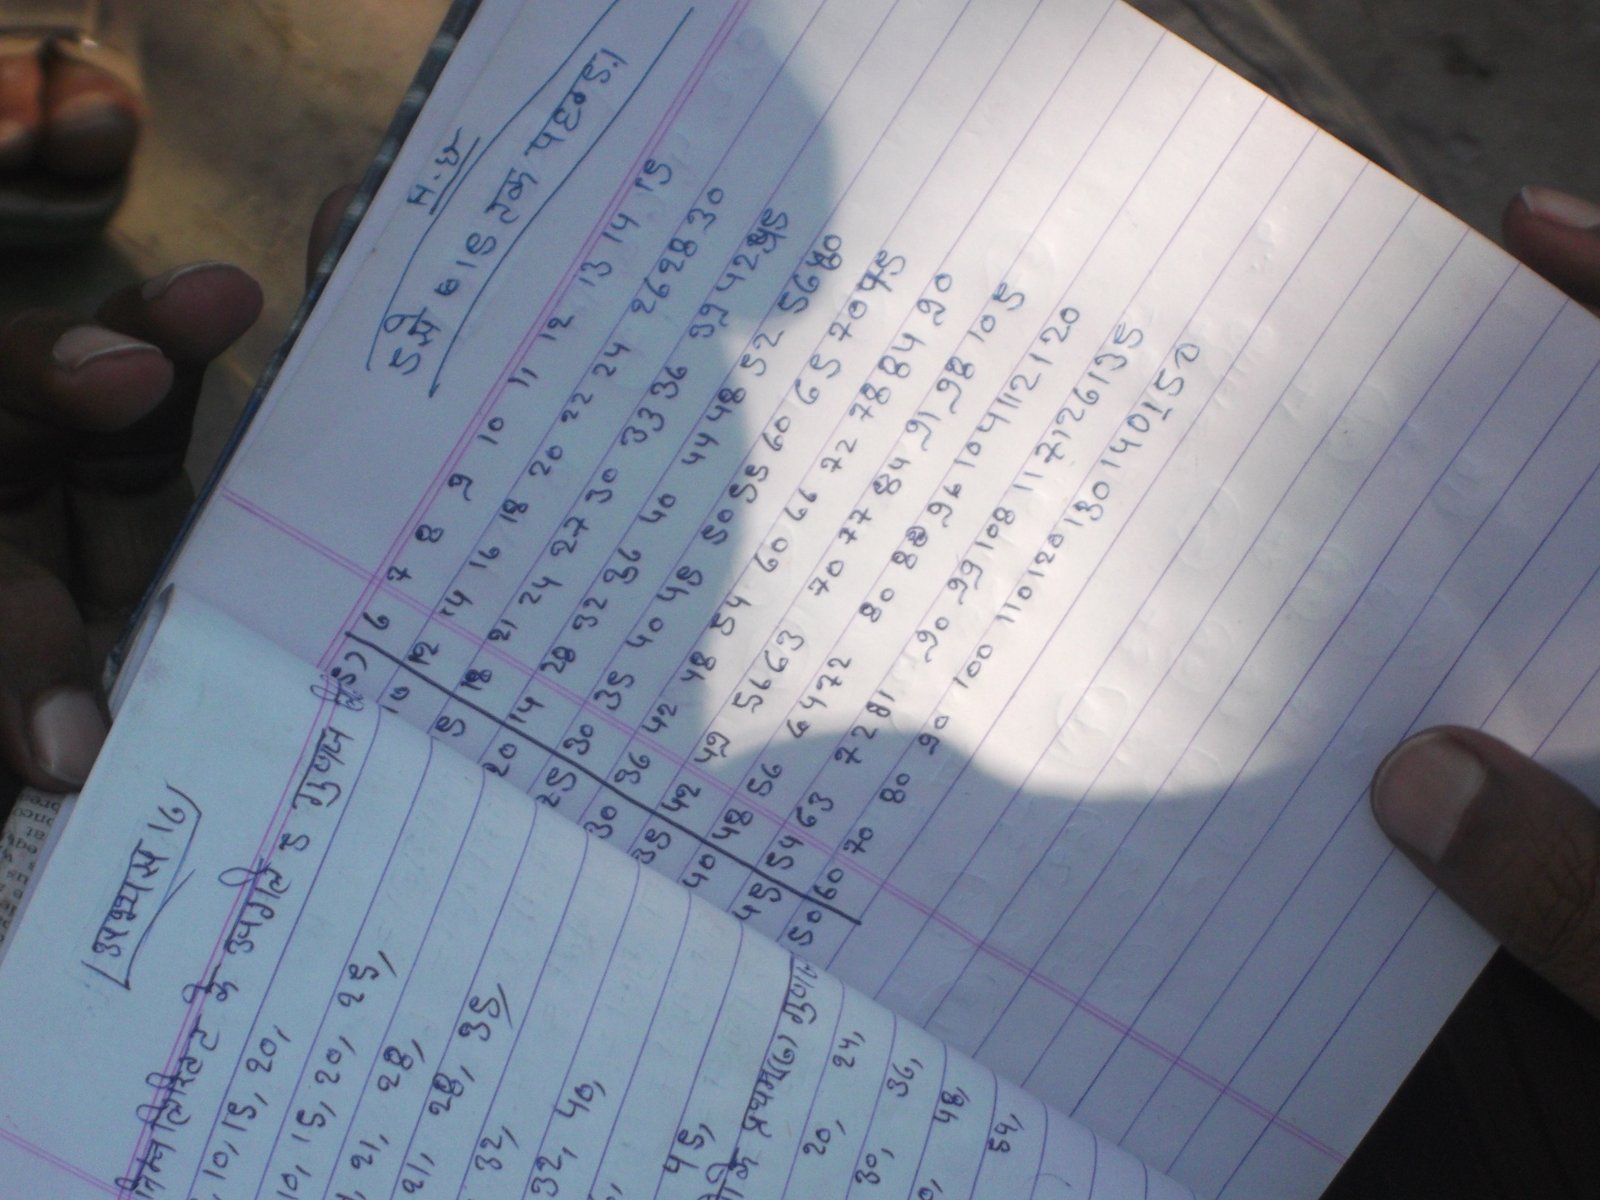 अभ्यास 16
निम्नलिखित के
10, 15, 20,
10, 15, 20, 25,
21, 28,
21, 28, 35,
32,
32, 40,
45,
20, 24,
30, 36,
48,
54,
H.W
5 से 15 तक पहाड़ा
5 6 7 8 9 10 11 12 13 14 15
10 12 14 16 18 20 22 24 26 28 30
15 18 21 24 27 30 33 36 39 42 45
20 14 28 32 36 40 44 48 52 56 60
25 30 35 40 45 50 55 60 65 70 75
30 36 42 48 54 60 66 72 78 84 90
35 42 49 56 63 70 77 84 91 98 105
40 48 56 64 72 80 88 96 104 112 120
45 54 63 72 81 90 99 108 117 126 135
50 60 70 80 90 100 110 120 130 140 150